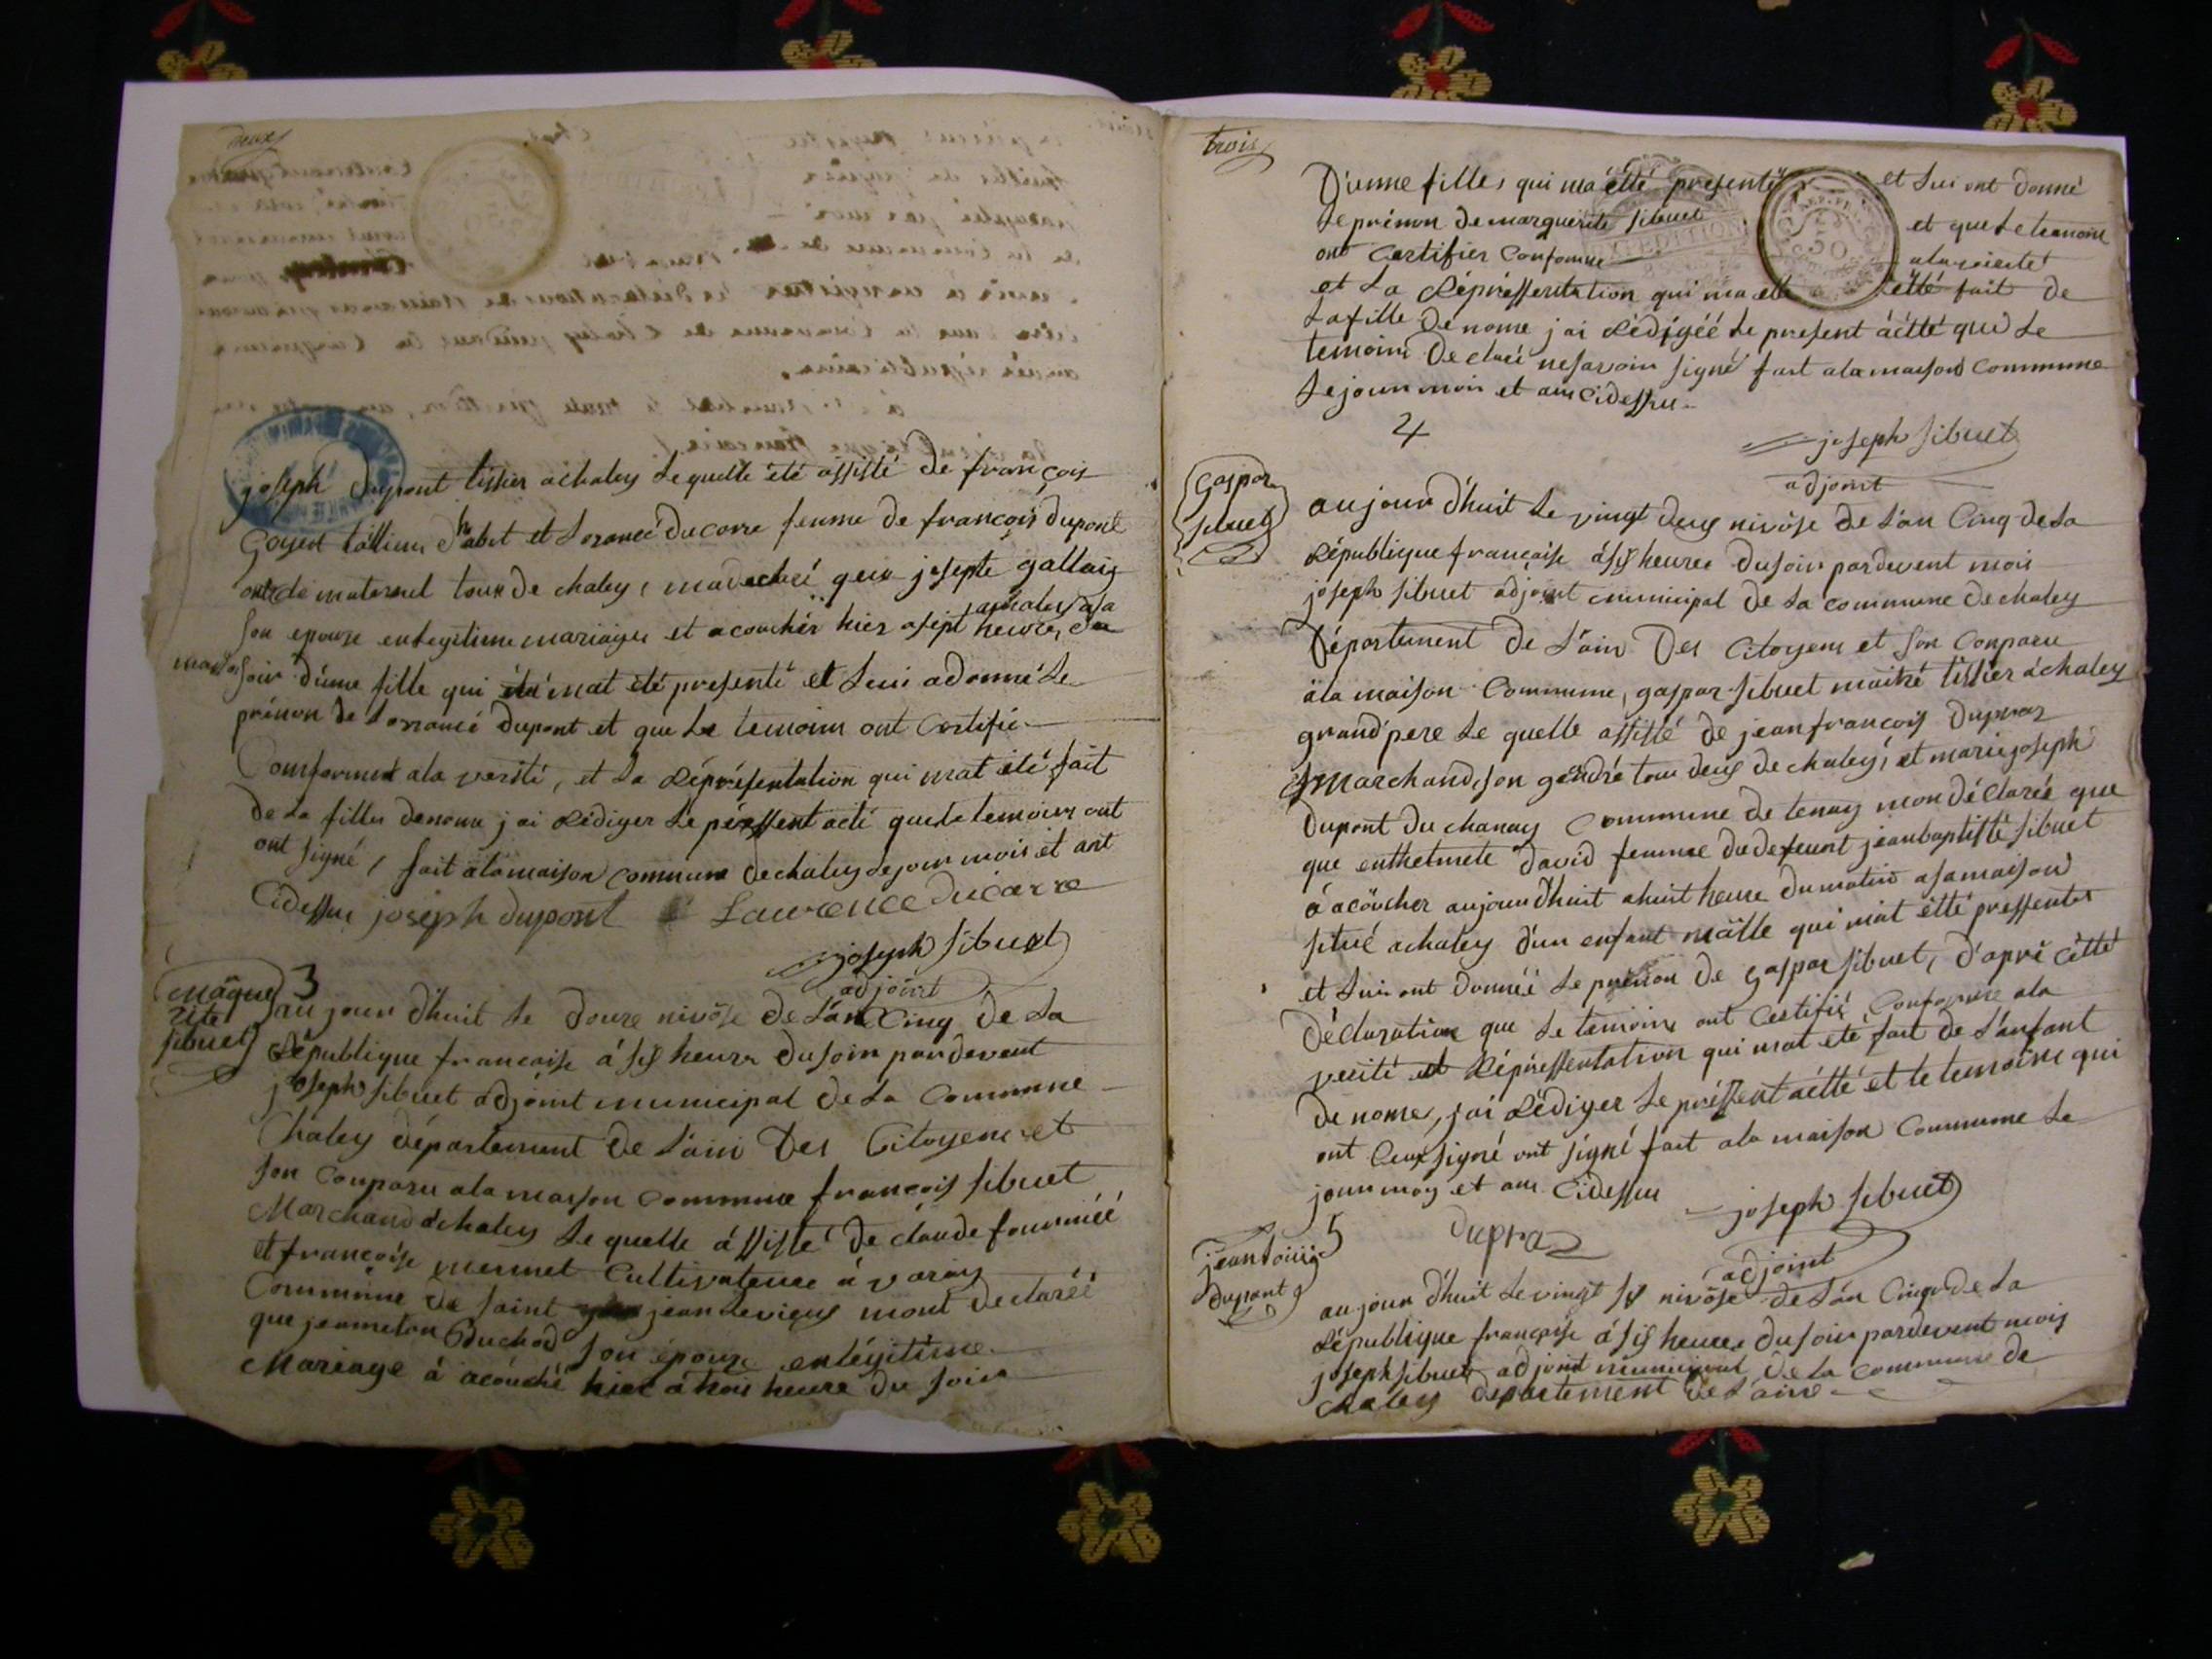 deux
joseph dupont tissier achaley Le quelle été assisté de françois
Goyet tállieur d'abit et Lorancé ducarre femme de françois dupont
maternel tous de chaley, madeclaré que josepte gallay
achaley asa
son epouse enlegitime mariages et acouchér hier asept heures du
maison
soir d'une fille qui m'at été presenté et Lui adonné Le
prénon de Lorancé dupont et que Le temoins ont Certifié
Comforment ala verité, et La Réprésentation qui mat été fait
de La filles denome j ai Rédiger Le péressent acté que Le temoins ont
ont signé, fait àlamaison commune dechaley Le jour mois et ant
Cidessus joseph dupont Lawrence Ducarre
joseph sibuet
adjoint
3
Mâgue
rite
sibuet
aujour d'huit Le douze nivôse de L'an Cinq de La
République francaise á sis heure dusoir pardevent
joseph sibuet adjoint municipal de La Commune
Chaley département de L'ain Des Citoyens et
son Conparu ala maison commune françois sibuet
Marchand àchaley Le quelle ássisté de claude fournié
et françoise mermet Cultivateure á varay
Commune de saint jean Levieus mont declaréé
que jeanneton Duchod son épouse enlégitime
Mariage á acouché hier á trois heure du soir
trois
D'unne filles qui ma étté presenté et Lui ont donné
Le prénon de marguerite sibuet et que Le temoins
ont Certifier Conforme ala vérité
et La Répréssentation qui ma étté fait de
La fille de nome j ai Rédigéé Le present áétté que Le
temoins declaré nesavoir signé fait alamaison Commune
Le jour mois et an Cidessu
4
joseph sibuet
adjoint
Gaspar
sibuet
aujour d'huit Le vingt deus nivôse de L'an Cinq de La
République françaisse ásis heures dusoir pardevent mois
joseph sibuet adjoint municipal de La commune dechaley
Département de L'ain Des Citoyens et son Conparu
àla maison Commune, gaspar sibuet maitre tissier áchaley
grand'pere Le quelle assisté de jean françois dupraz
Marchand son gendre tous deus de chaley, et marie joseph
Dupont du chanay Commune de tenay mon déclarée que
que david femme du defeunt jeanbaptisté sibuet
á acöucher aujourd'huit ahuit heure du matin asamaison
situé achaley d'un enfant mâlle qui mat étté pressenter
et Lui ont donnéé Le prénon de Gaspar sibuet, d'apré cétté
déclaration que Le temoins ont Certifié Conforme ala
verité et Répréssentation qui mat eté fait de L'anfant
de nome, jai Rédiger Le préssent áétté et Le temoins qui
ont signé ont signé fait ala maison Commune Le
jour moy et an Cidessu
joseph sibuet
dupraz
adjoint
5
jean Loüis
dupont
aujour d'huit Le vingt sis nivôse de L'an Cinque de La
République françaisse á sis heures dusoir pardevent mois
joseph sibuet adjoint municipal de La commune de
chaley departement de L'ain